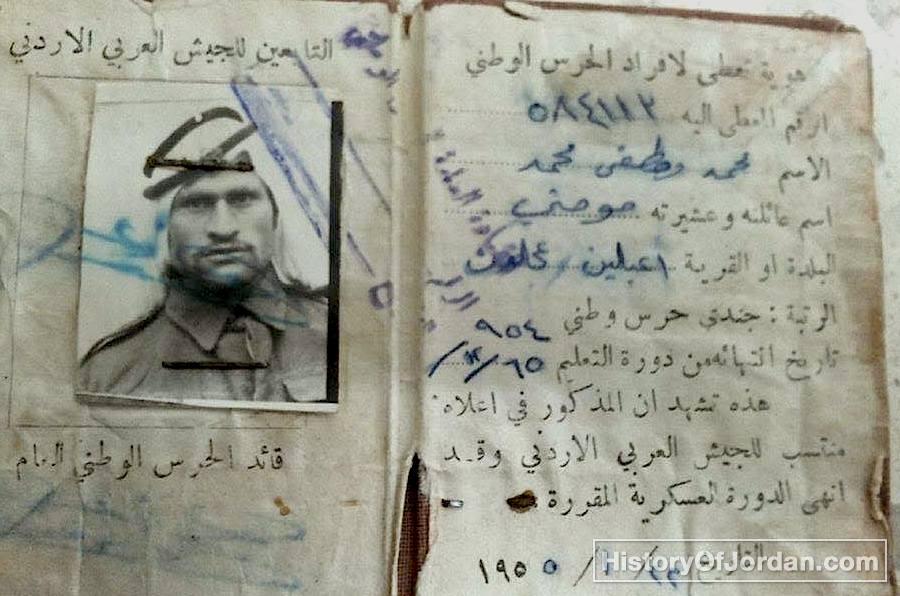 هوية تعطى لافراد الحرس الوطني
التابعين للجيش العربي الاردني
الرقم المعطى اليه ٥٨٤١١٢
الاسم محمد مصطفى محمد
اسم عائلته وعشيرته مومني
البلدة او القرية اعبلين عجلون
الرتبة : جندي حرس وطني
تاريخ انتهائه من دورة التعليم
هذه تشهد ان المذكور في اعلاه
منتسب للجيش العربي الاردني وقد
انهى الدورة العسكرية المقررة .
التاريخ ١٩٥٥
قائد الحرس الوطني العام
HistoryOfJordan.com